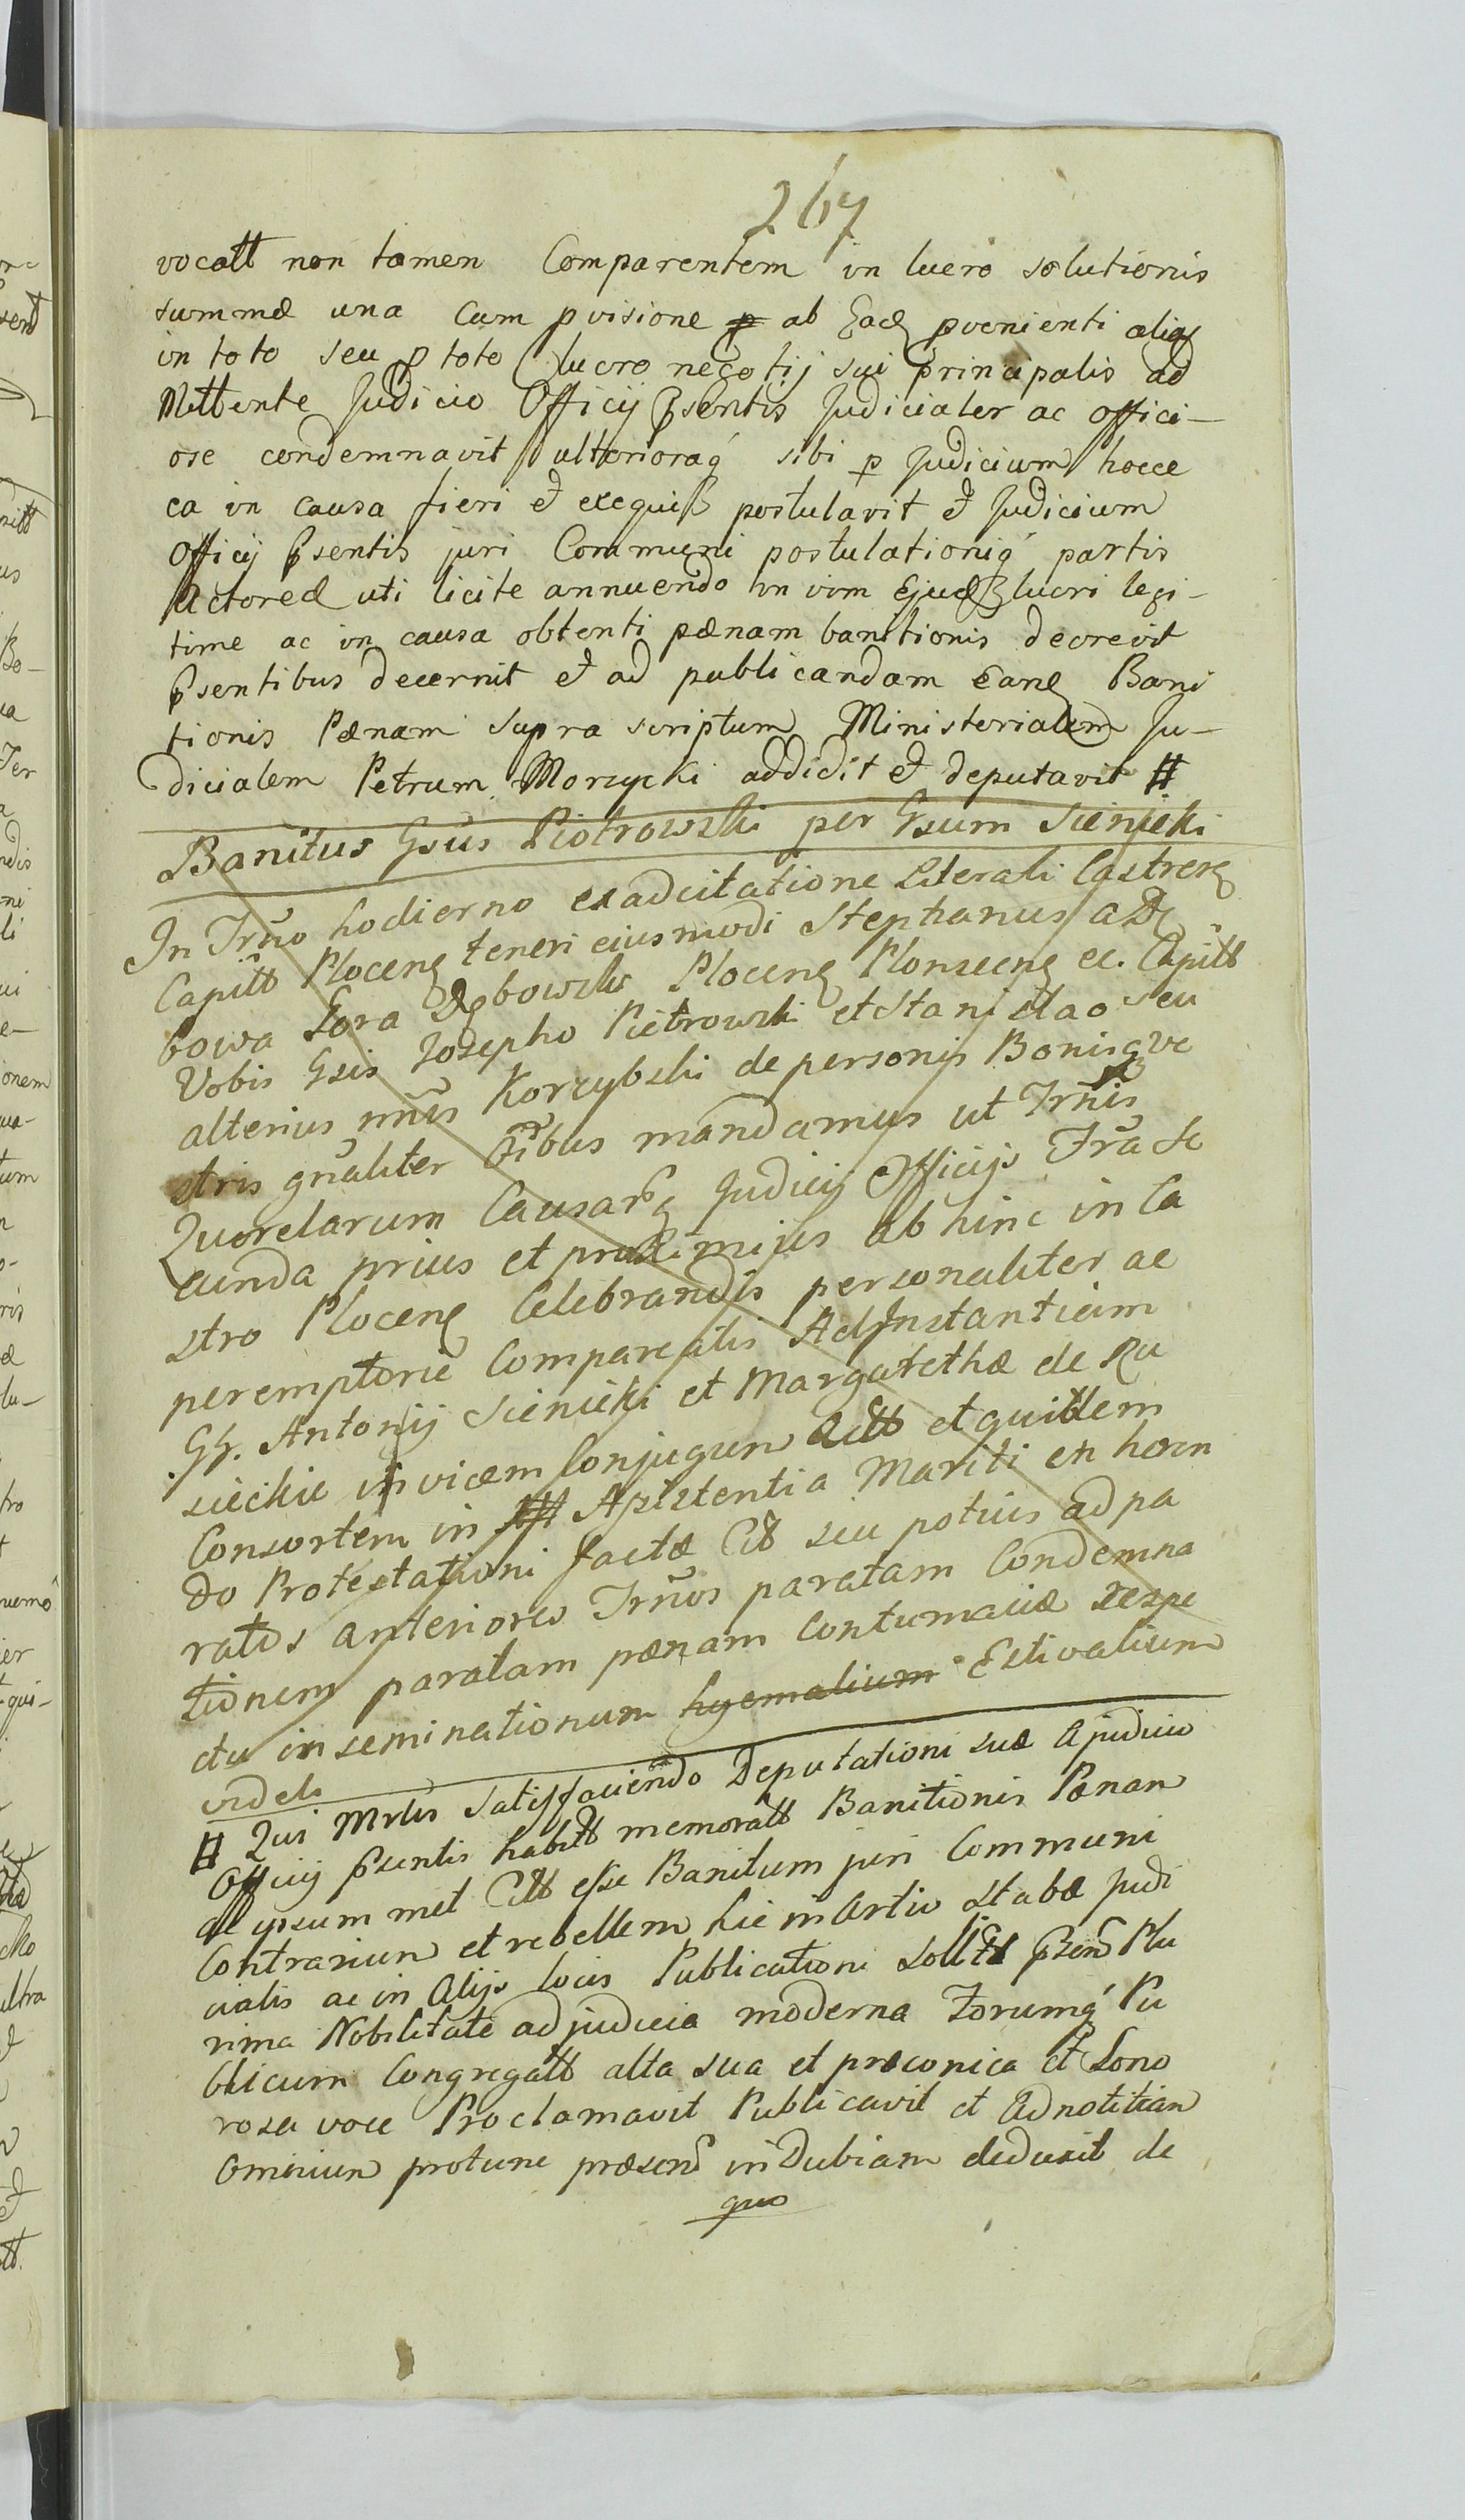 267
vocatt non tamen Comparentem in lucro solutionis
summæ una Cum pvisione ab Eadē pvenienti alias
in toto seu p toto lucro negotij sui principalis ad
Mittente Judicio Officij Psentis Judicialer ac offici-
ose condemnavit ulterioraq́ sibi p Judicium hocce
ea in causa fieri et exequiß postulavit et Judicium
Officij Psentis juri Communi postulationiq́ partis
Actoreæ uti licite annuendo in vim Ejusd lucri legi-
time ac in causa obtenti pænam banitionis decrevit
Psentibus decernit et ad publicandam Eand Bani
tionis Pænam supra scriptum Ministerialem Ju-
dicialem Petrum Morzycki addidit et deputavit #
Banitus Gsus Piotrowski per Gsum Sienicki
In Trño hodierno ex adcitatione Literali Castreñ
Capitt Ploceñ teneri eiusmodi Stephanus a Dę
bowa Gora Dębowski Ploceñ Plonsceñ ec. Capitt
Vobis Gsis Josepho Pietrowski et Stanislao seu
alterius nñis Korzybski de personis Bonisqve
stris gñaliter oĩbus mandamus ut Trñis
Querelarum Causarq Judicij Officijs Fra Se
cunda prius et proximius ab hinc in Ca
stro Ploceñ Celebrandis personaliter ac
peremptorie Compareatis Ad Instantiam
GG. Antonij Sienicki et Margarethæ de Ru
sieckie invicem Conjugum Actt et quidem
Consortem in Assistentia Mariti en hæren
do Protestationi factæ Citt seu potius ad pa
ratos anteriores Trños paratam Condemna
tionem paratam pænam Contumaciæ respe
ctu inseminationum hyemalium Estivalium
videls
# Qui Mrlis Satisfaciendo Deputationi suæ a judicio
Officij Psentis habitt memoratt Banitionis Pænam
ac ipsum met Citt esse Banitum juri Communi
Contrarium et rebellem hic in Artio stabæ Judi
cialis ac in Alijs locis Publicationi sollitt Psenō Plu
rima Nobilitate ad judicia moderna Forumq́ Pu
blicum Congregatt alta sua et præconica et Sono
rosa voce Proclamavit Publicavit et Ad notitiam
Omnium protunc præsenō indubiam deduxit de
quo